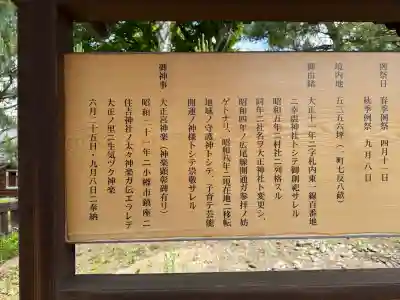 例祭日　春季例祭　四月十一日
秋季例祭　九月八日
境内地　五二五六坪（一町七反八畝）
御由緒　大正十一年二字札内東一線百番地
二幸震神社トシテ御創祀サレル
昭和五年二村社二列格スル
同年二社名ヲ大正神社ト変更シ、
昭和四年ノ広尾線開通ガ参拝ノ妨
ゲトナリ、昭和六年二現在地二移転
地域ノ守護神トシテ、子育テ芸能
開運ノ神様トシテ崇敬サレル
御神事　大正宮神楽（神楽顕彰碑有リ）
昭和二十一年二小樽市鎮座二
住吉神社ノ太々神楽ガ伝エラレテ
大正ノ里二生気ヅク神楽
六月二十五日・九月八日二奉納